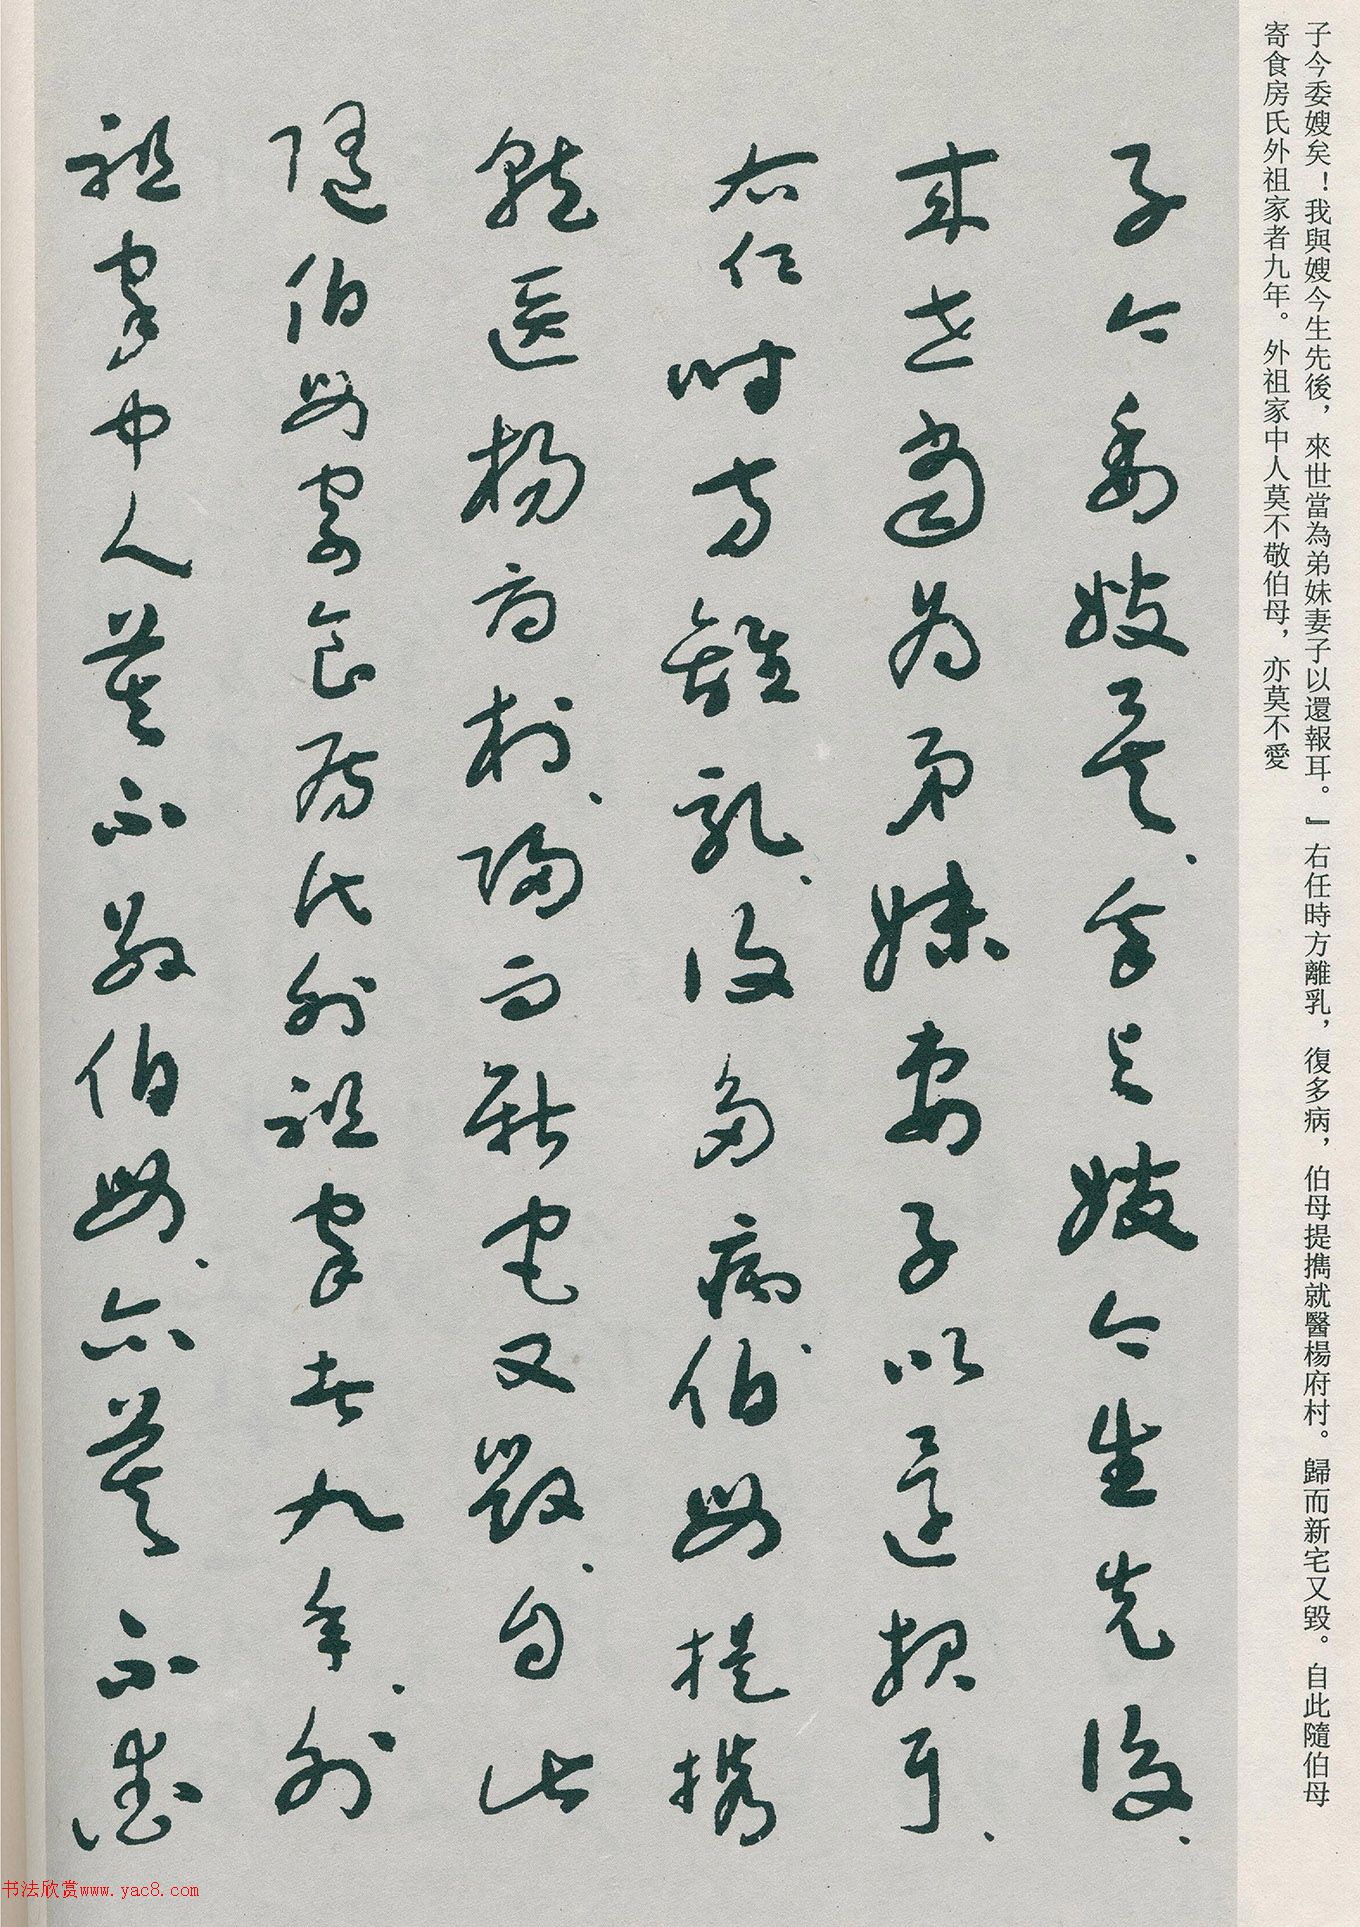 子今委嫂矣！我與嫂今生先後，來世當為弟妹妻子以還報耳。』右任時方離乳，復多病，伯母提攜就醫楊府村。歸而新宅又毀。自此隨伯母
寄食房氏外祖家者九年。外祖家中人莫不敬伯母，亦莫不愛
子今委嫂矣、我与嫂今生先後、
來世當為弟妹妻子以還報耳、
右任時方離乳、復多病、伯母提攜
就醫楊府村、歸而新宅又毀、自此
隨伯母寄食房氏外祖家者九年、外
祖家中人莫不敬伯母、亦莫不愛
书法欣赏www.yac8.com